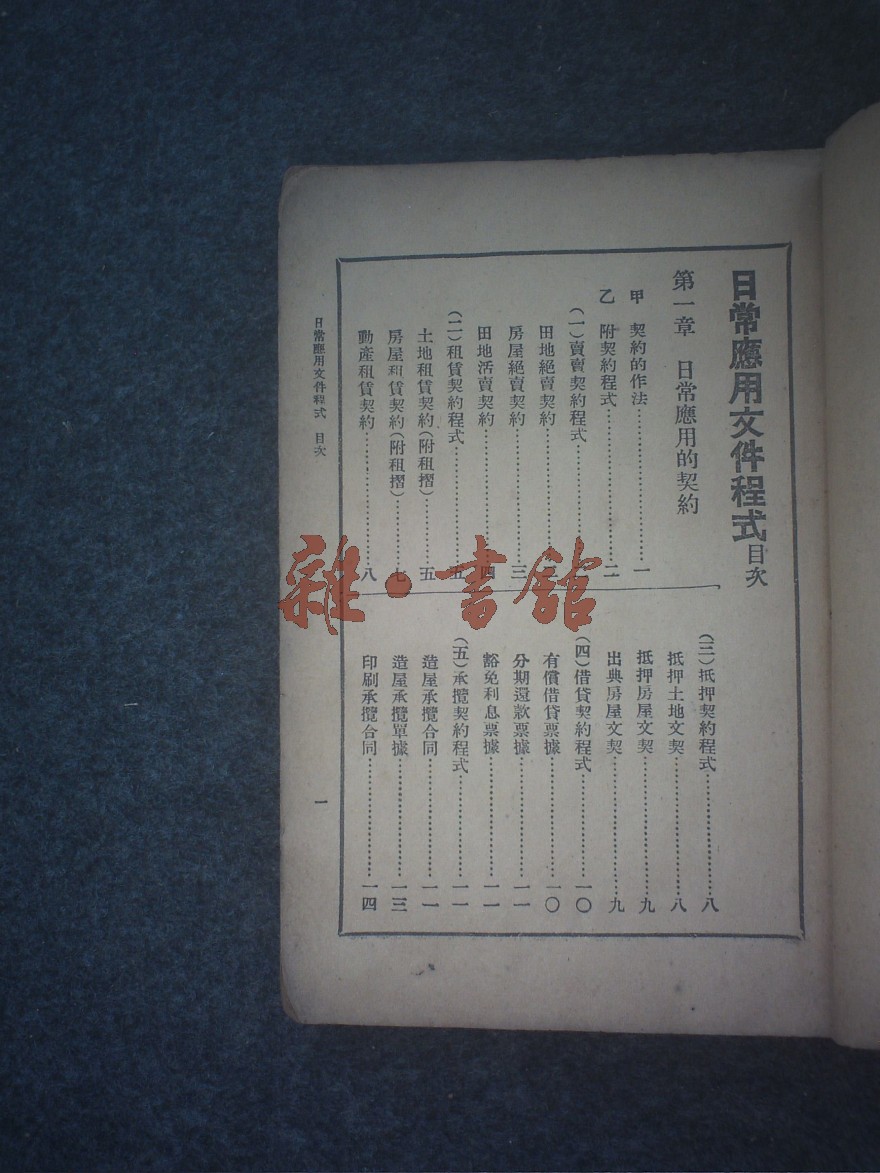 日常應用文件程式目次
第一章　日常應用的契約
甲　契約的作法……一
乙　附契約程式……二
(一)賣賣契約程式……
田地絕賣契約……
房屋絕賣契約……三
田地活賣契約……四
(二)租賃契約程式……五
土地租賃契約(附租摺)……五
房屋租賃契約(附租摺)……七
動產租賃契約……八
(三)抵押契約程式……八
抵押土地文契……八
抵押房屋文契……九
出典房屋文契……九
(四)借貸契約程式……一〇
有償借貸票據……一〇
分期還款票據……一一
豁免利息票據……一一
(五)承攬契約程式……一一
造屋承攬合同……一一
造屋承攬單據……一三
印刷承攬合同……一四
日常應用文件程式　目次
一
雜·書館